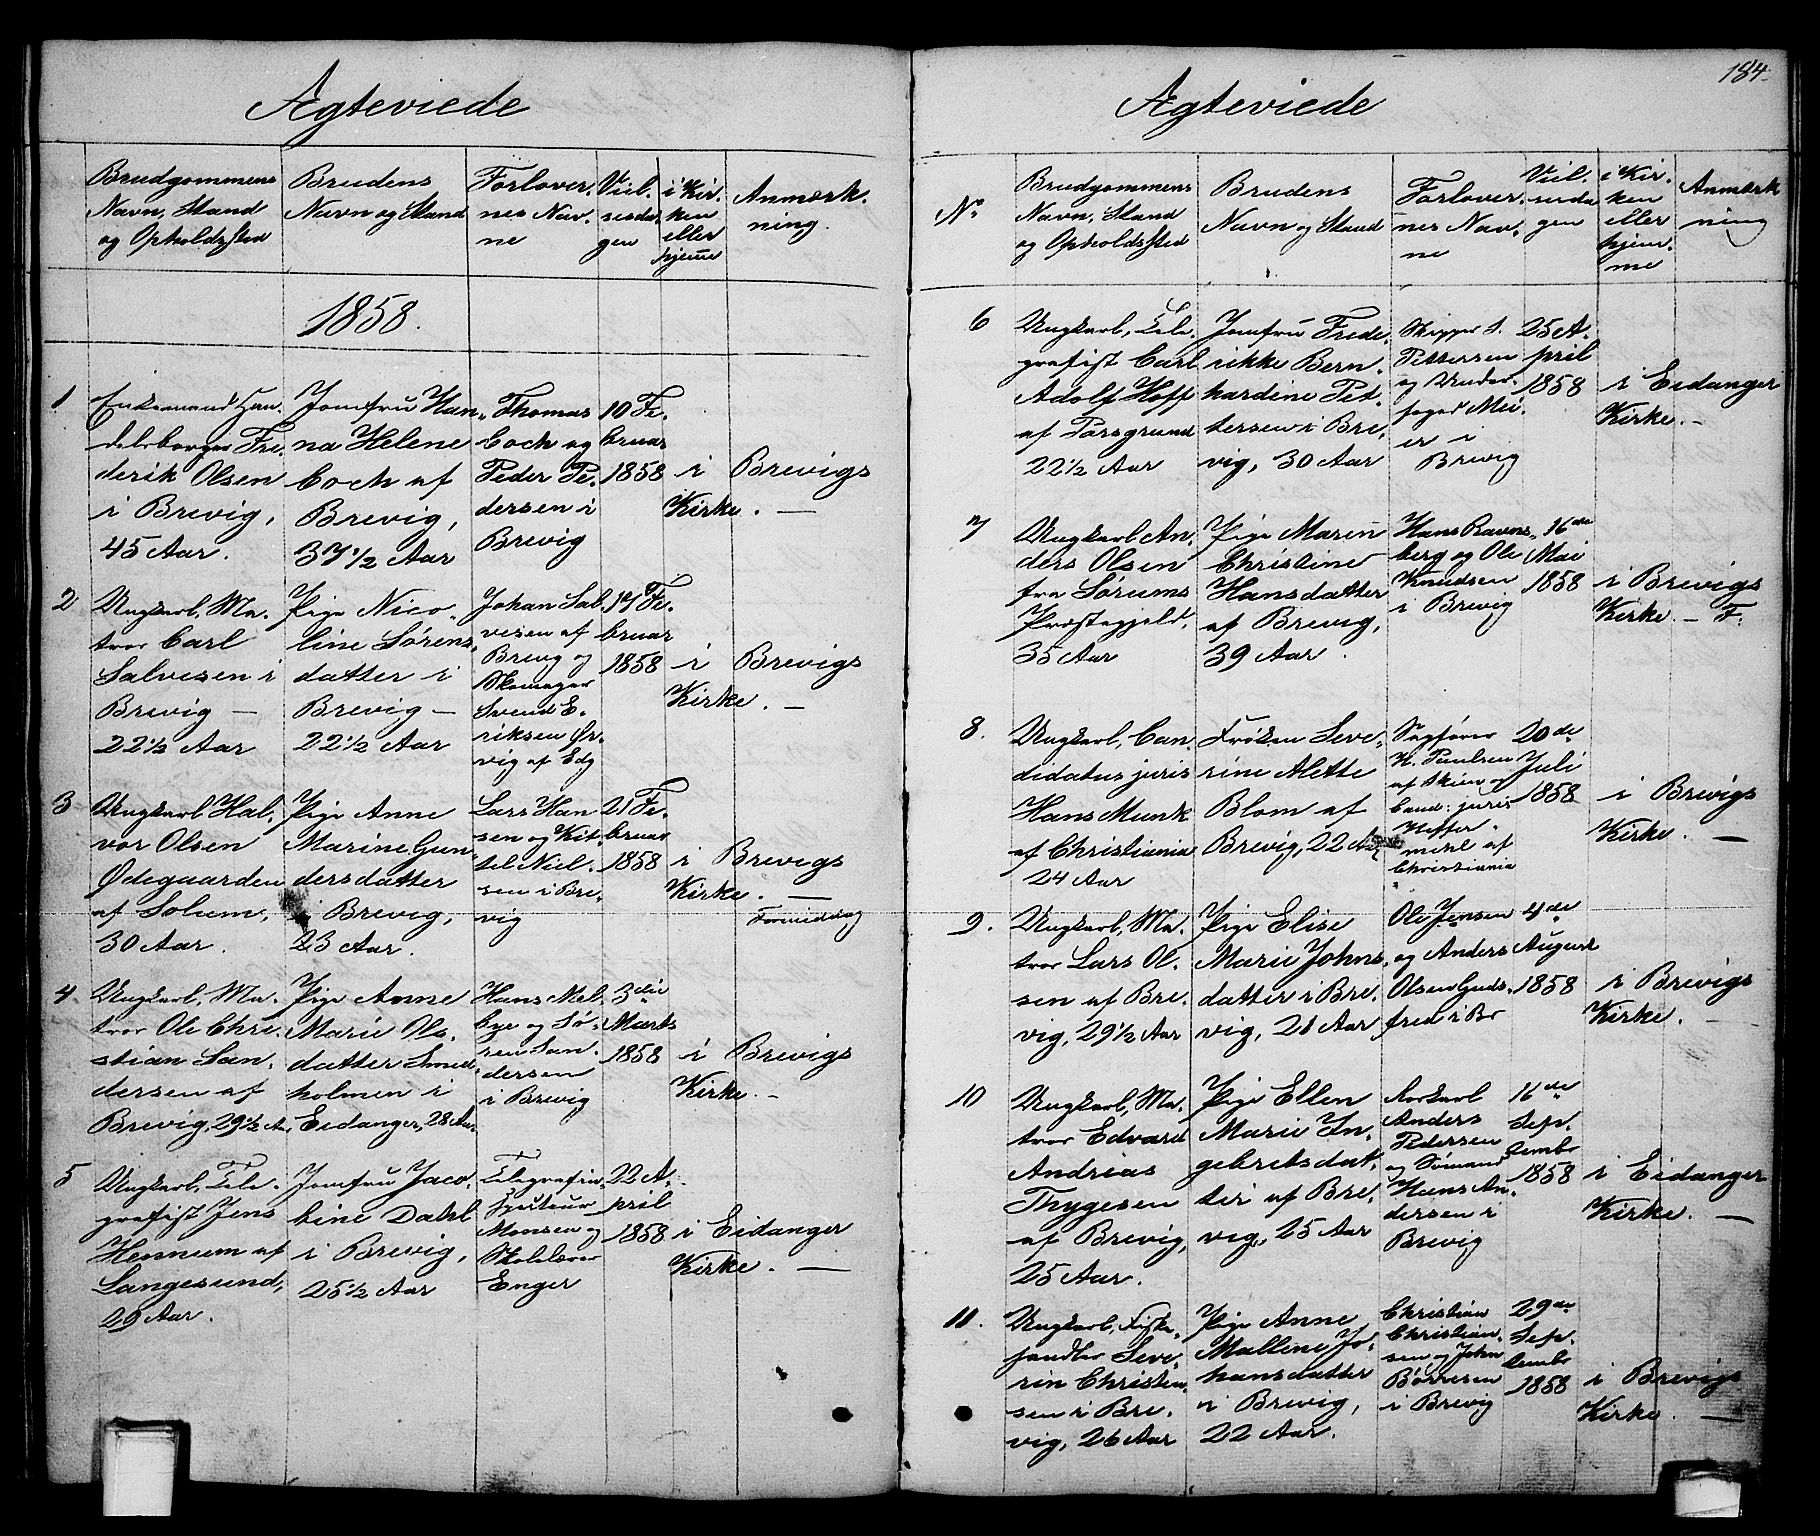 Ægteviede
Brudgommens
Navn, Stand
og Opholdssted
Brudens
Navn og Stand
Forlover-
nes Nav-
ne
Viel-
sesda-
gen
i Kir-
ken
eller
hjemme
Anmærk-
ning.
1858.
1
Enkemand Han-
delsborger Fre-
derik Olsen
i Brevig,
45 Aar.
Jomfru Han-
na Helene
Coch af
Brevig,
37 1/2 Aar
Thomas
Coch og
Peder Pe-
dersen i
Brevig
10 Fe-
bruar
1858
i Brevigs
Kirke. —
2
Ungkarl, Ma-
tros Carl
Salvesen i
Brevig —
22 1/2 Aar
Pige Nico-
line Sørens-
datter i
Brevig —
22 1/2 Aar
Johan Sal-
vesen af
Brevig og
Skomager
Svend E-
riksen Ør-
vig af Edg
17 Fe-
bruar
1858
i Brevigs
Kirke. —
3
Ungkarl Hal-
vor Olsen
Ødegaarden
af Solum,
30 Aar.
Pige Anne
Marine Gun-
dersdatter
i Brevig,
23 Aar.
Lars Han-
sen og Kit-
tel Niel-
sen i Bre-
vig
21 Fe-
bruar
1858
i Brevigs
Kirke. —
Formiddag
4
Ungkarl, Ma-
tros Ole Chri-
stian San-
dersen af
Brevig, 29 1/2 A.
Pige Anne
Marie Ols-
datter Smed-
holmen i
Eidanger, 28 Aar
Hans Mel-
bye og Sø-
ren San-
dersen
i Brevig
3die
Marts
1858
i Brevigs
Kirke. —
5
Ungkarl, Tele-
grafist Jens
Hennum af
Langesund,
29 Aar.
Jomfru Jaco-
bine Dahl
i Brevig,
25 1/2 Aar
Monsen og
Skolelærer
Enger
22 A-
pril
1858
i Eidanger
Kirke. —
184.
Ægteviede
No
Brudgommens
Navn, Stand
og Opholdssted
Brudens
Navn og Stand
Forlover-
nes Nav-
ne
Viel-
sesda-
gen
i Kir-
ken
eller
hjem-
me
Anmærk
ning
6
Ungkarl, Tele-
grafist Carl
Adolf Hoff
af Porsgrund
22 1/2 Aar
Jomfru Frede-
rikke Bern-
hardine Pet-
tersen i Bre-
vig, 30 Aar
Skipper S.
Pettersen
og Under-
foged Mei-
er i
Brevig
25 A-
pril
1858
i Eidanger
Kirke. —
7
Ungkarl An-
ders Olsen
fra Sørums
Præstegjeld,
35 Aar
Pige Maren
Christine
Hansdatter
af Brevig,
39 Aar.
Hans Ravns-
berg og Ole
Knudsen
i Brevig
16de
Mai
1858
i Brevigs
Kirke. — F.
8.
Ungkarl, Can-
didatus juris
Hans Munk
af Christiania
24 Aar
Frøken Seve-
rine Alette
Blom af
Brevig, 22 Aar
Sagfører
H. Paulsen
af Skien og
Cand: juris
af
Christiania
20de
Juli
1858
i Brevigs
Kirke. —
9.
Ungkarl, Ma-
tros Lars Ol-
sen af Bre-
vig, 29 1/2 Aar
Pige Elise
Marie Johns-
datter i Bre-
vig, 21 Aar
Ole Jensen
og Anders
Olsen Guds-
fred i Br
4de
August
1858
i Brevigs
Kirke. —
10
Ungkarl, Ma-
tros Edvard
Andreas
Thygesen
af Brevig,
25 Aar.
Pige Ellen
Marie In-
gebretsdat-
ter af Bre-
vig, 25 Aar
Anders
Pedersen
og Sømand
Hans An-
dersen i
Brevig
16de
Sep-
tember
1858
i Eidanger
Kirke. —
11.
Ungkarl, Fiske-
handler Seve-
rin Christen-
sen i Bre-
vig, 26 Aar
Pige Anne
Mallene Jo-
hansdatter
i Brevig,
22 Aar.
Christian
Christian-
sen og John
Børresen
i Brevig
29de
Sep-
tember
1858
i Brevigs
Kirke. —